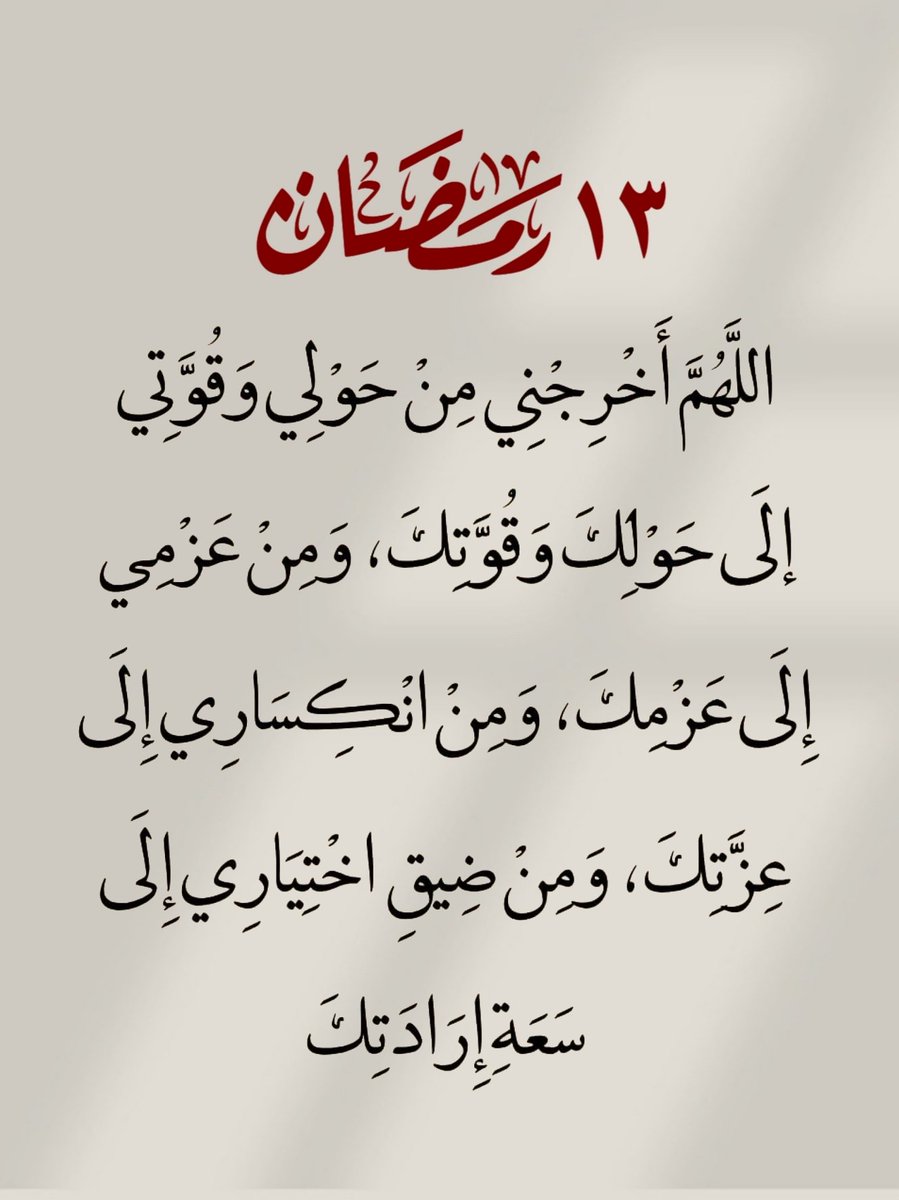 ١٣ رمضان
اللَّهُمَّ أَخْرِجْنِي مِنْ حَوْلِي وَقُوَّتِي
إلَى حَوْلِكَ وَقُوَّتِكَ، وَمِنْ عَزْمِي
إِلَى عَزْمِكَ، وَمِنْ انْكِسَارِي إِلَى
عِزَّتِكَ، وَمِنْ ضِيقِ اخْتِيَارِي إِلَى
سَعَةِ إِرَادَتِكَ